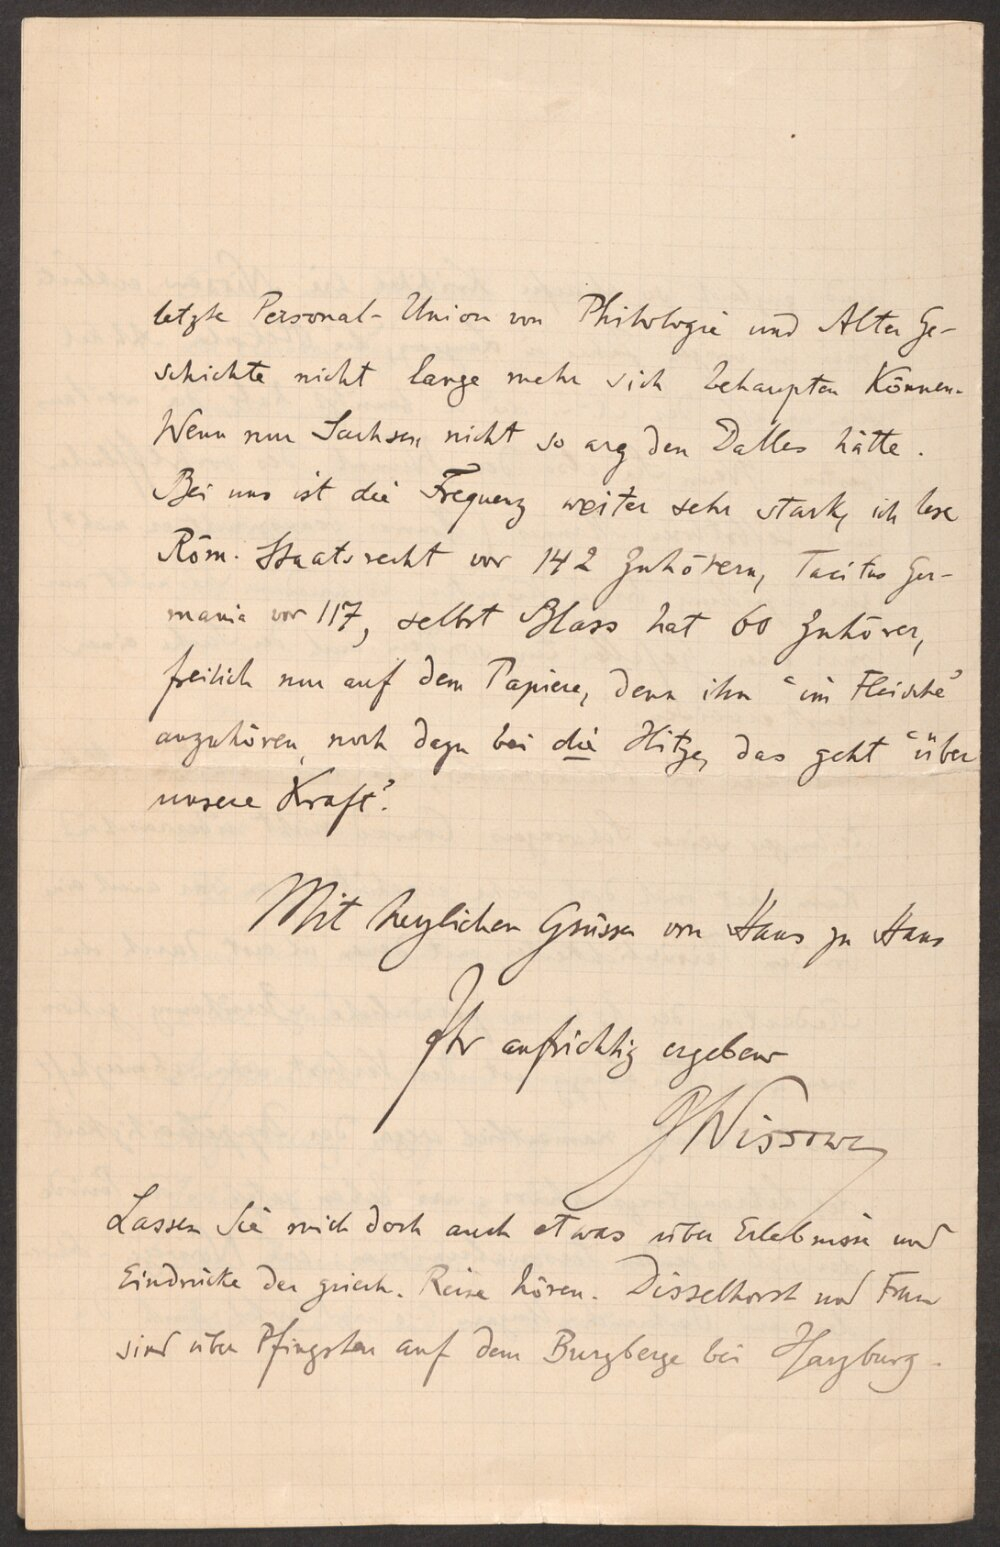 letzte Personal-Union von Philologie und Alter Ge-
schichte nicht lange mehr sich behaupten können.
Wenn nur Sachsen nicht so arg den Dalles hätte.
Bei uns ist die Frequenz weiter sehr stark, ich lese
Röm. Staatsrecht vor 142 Zuhörern, Tacitus Ger-
mania vor 117, selbst Blass hat 60 Zuhörer,
freilich nur auf dem Papiere, denn ihn “im Fleische”
anzuhören, noch dazu bei die Hitze, das geht “über
unsere Kraft”.
Mit herzlichen Grüssen von Haus zu Haus
Ihr aufrichtig ergebener
GWissowa
Lassen Sie mich doch auch etwas über Erlebnisse und
Eindrücke der griech. Reise hören. Disselhorst und Frau
sind über Pfingsten auf dem Burgberge bei Harzburg.